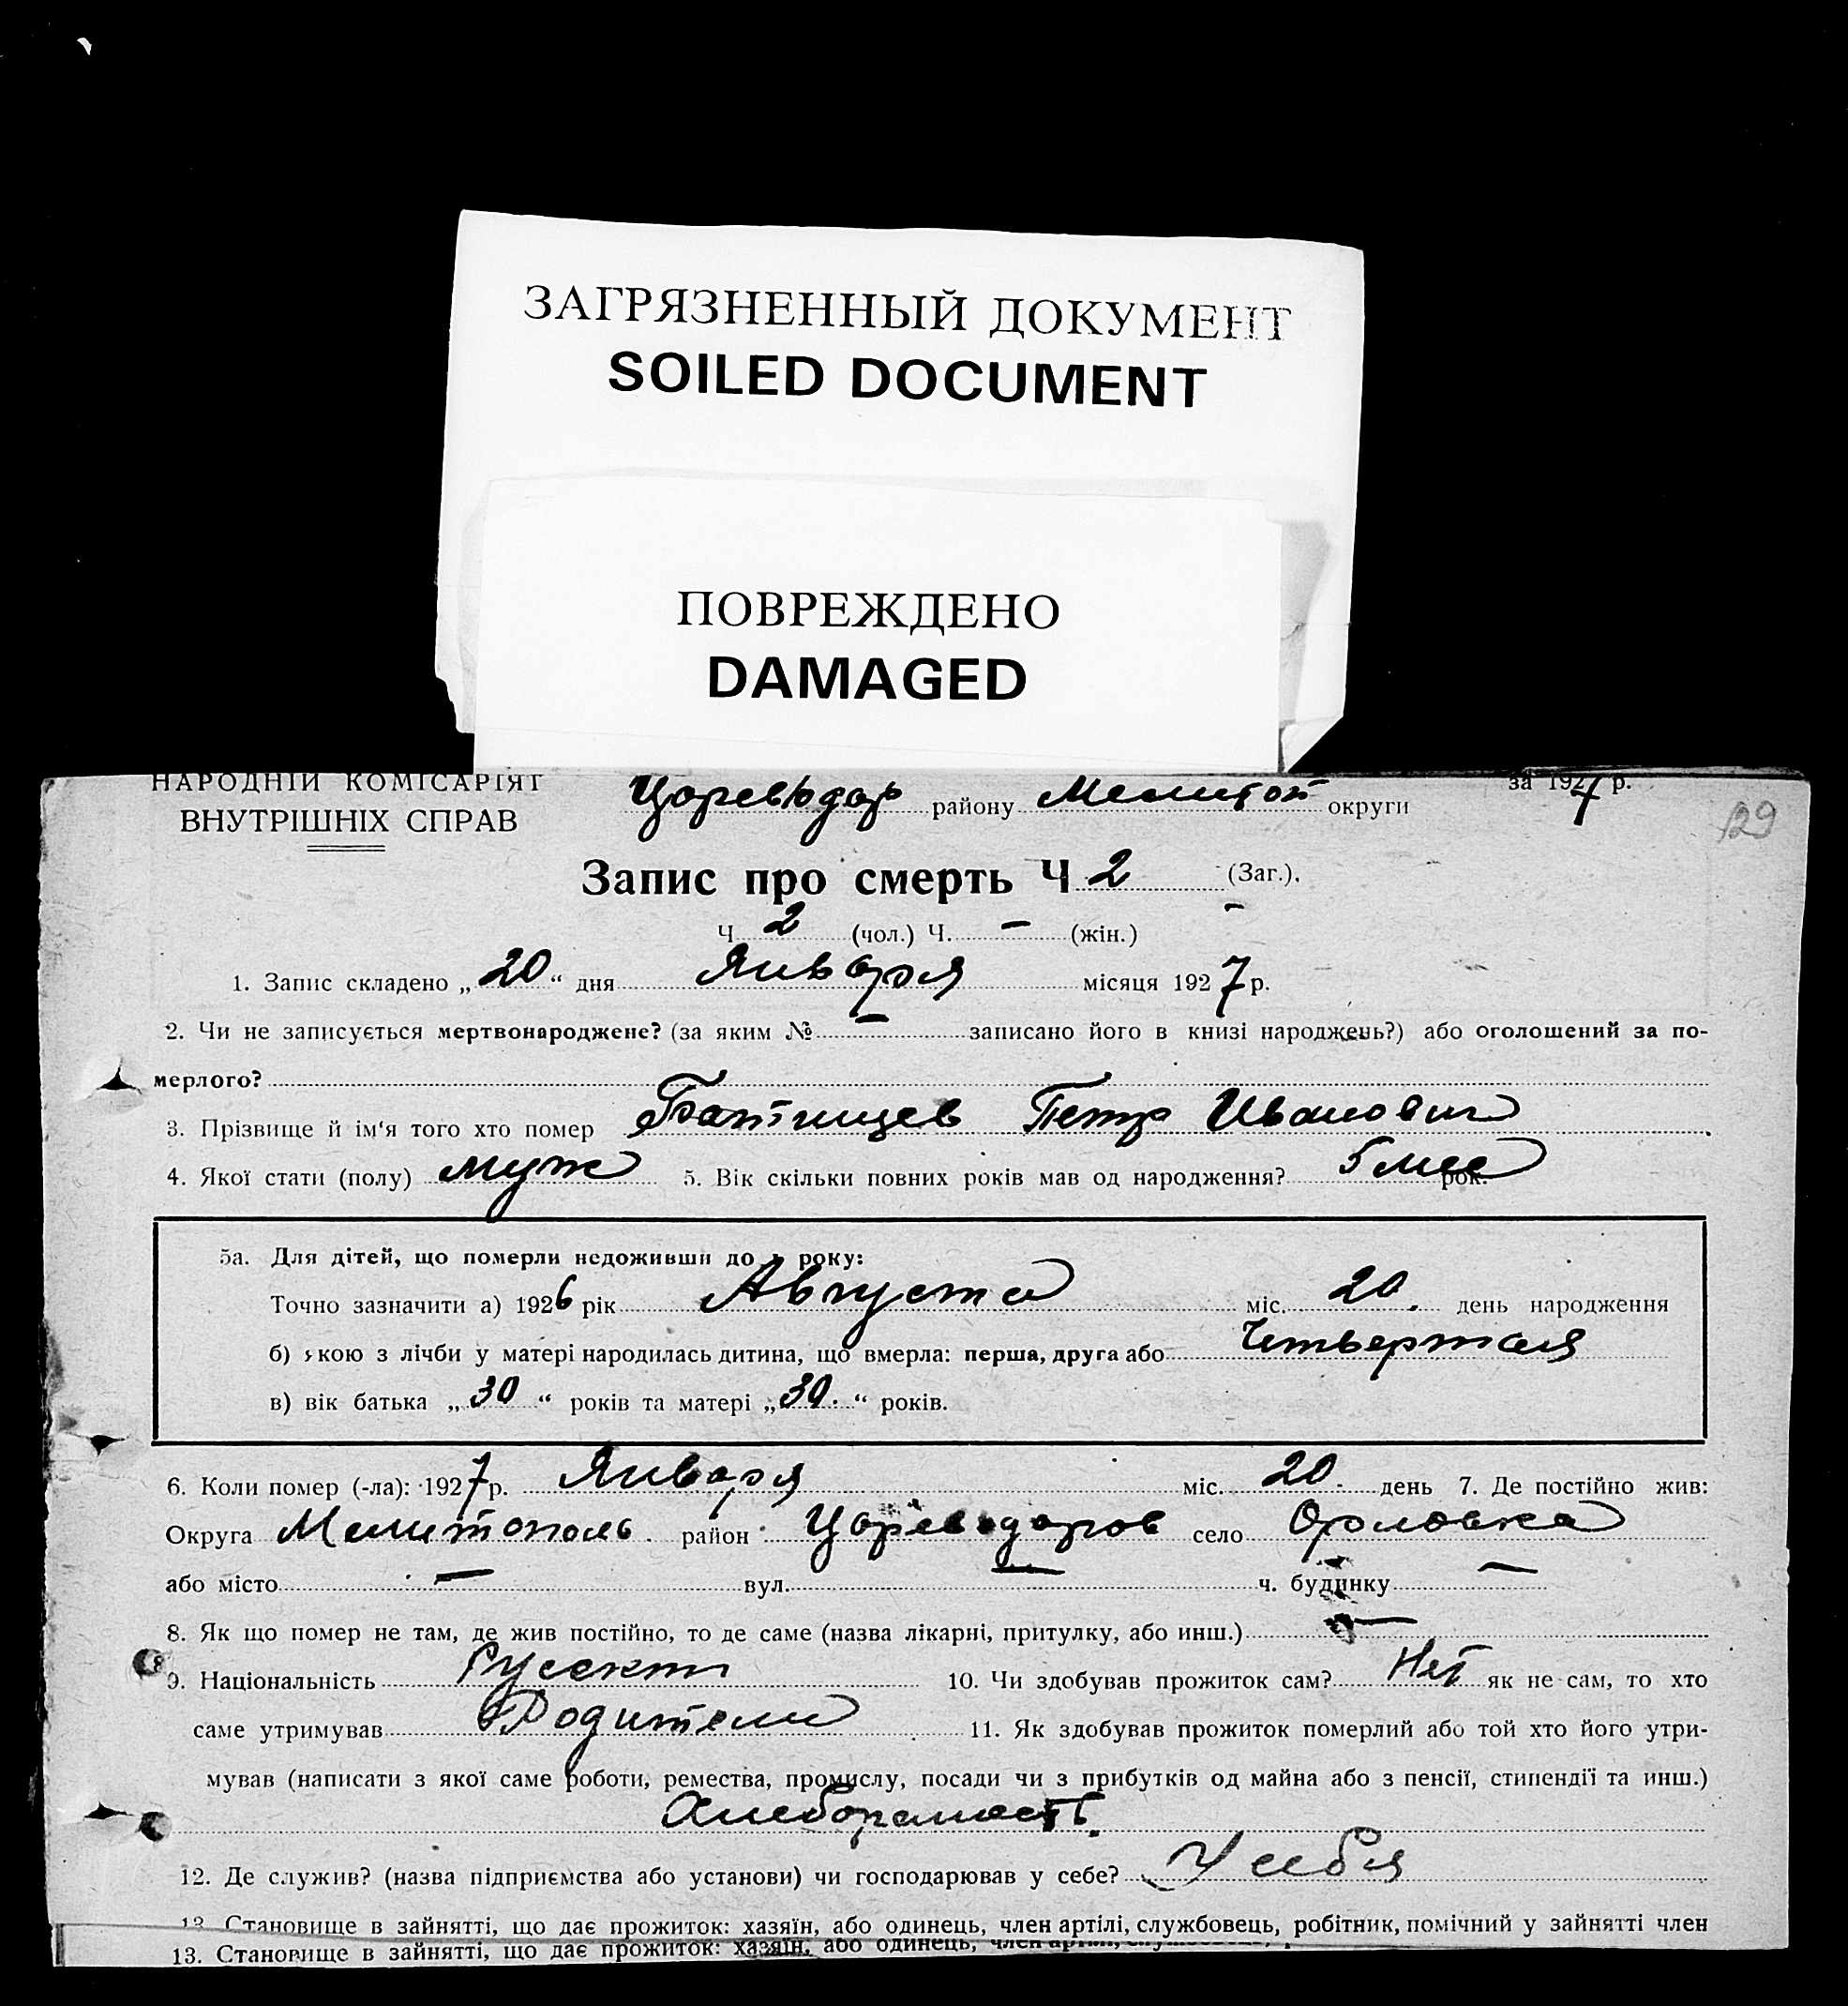 ЗАГРЯЗНЕННЫЙ ДОКУМЕНТ
SOILED DOCUMENT
ПОВРЕЖДЕНО
DAMAGED
НАРОДНІЙ КОМІСАРІЯТ
ВНУТРІШНІХ СПРАВ
Цареводар району Мелитоп округи
за 1927 р.
129
Запис про смерть Ч 2 (Заг.).
Ч. 2 (чол.) Ч. — (жін.) —
1. Запис складено „20“ дня Января місяця 1927 р.
2. Чи не записується мертвонароджене? (за яким № — записано його в книзі народжень?) або оголошений за по-
мерлого?
3. Прізвище й ім'я того хто помер Батищев Петр Иванович
4. Якої стати (полу) муж 5. Вік скільки повних років мав од народження? 5 мес рок.
5а. Для дітей, що померли недоживши до 1 року:
Точно зазначити а) 1926 рік Августа міс. 20 день народження
б) якою з лічби у матері народилась дитина, що вмерла: перша, друга або Четвертая
в) вік батька „30“ років та матері „30“ років.
6. Коли помер (-ла): 1927 р. Января міс. 20 день 7. Де постійно жив:
Округа Мелитополь район Цареводаров село Орловка
або місто — вул. — ч. будинку —
8. Як що помер не там, де жив постійно, то де саме (назва лікарні, притулку, або инш.) —
9. Національність 10. Чи здобував прожиток сам? Нет як не сам, то хто
саме утримував Родители 11. Як здобував прожиток померлий або той хто його утри-
мував (написати з якої саме роботи, ремества, промислу, посади чи з прибутків од майна або з пенсії, стипендії та инш.)
12. Де служив? (назва підприємства або установи) чи господарював у себе? У себя
13. Становище в зайнятті, що дає прожиток: хазяїн, або одинець, член артілі, службовець, робітник, помічний у зайнятті член
13. Становище в зайнятті, що дає прожиток: хазяїн, або одинець, член артілі,